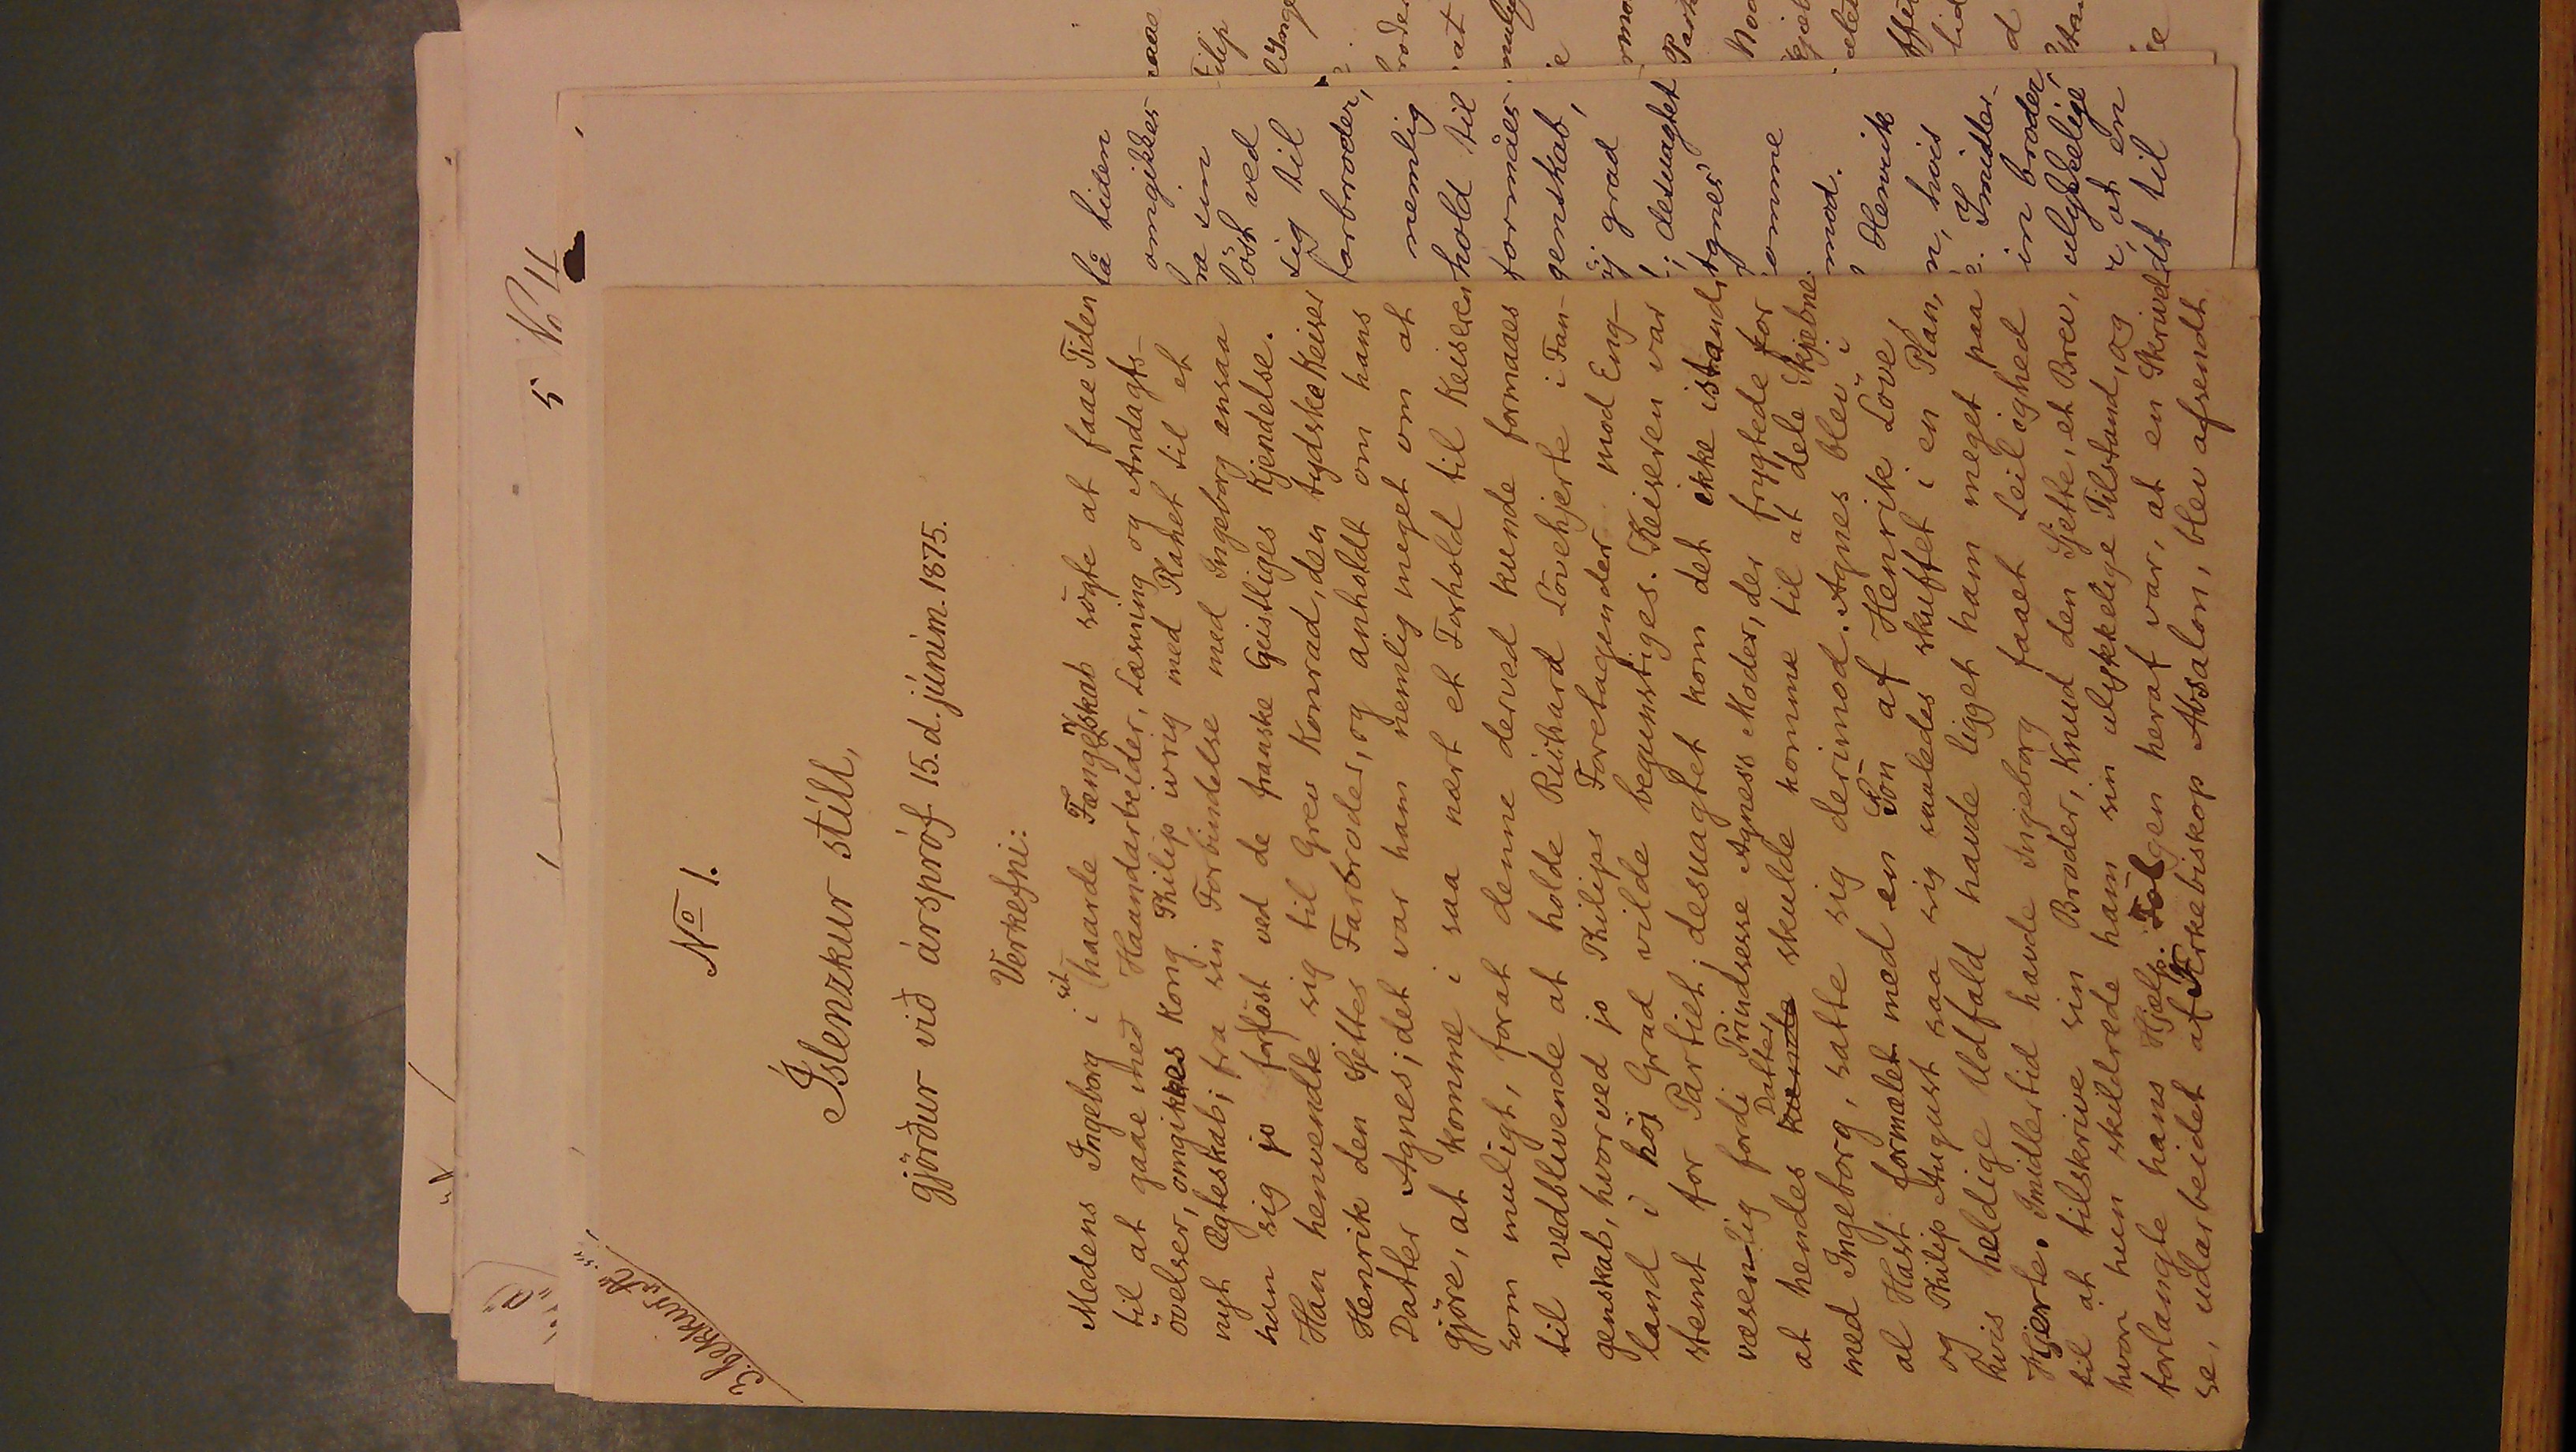 3. bekkur A
No 1.
Íslenzkur stíll,
gjörður við árspróf 15. d. júním. 1875.
Verkefni:
Medens Ingeborg i sit haarde Fangenskab søgte at faae Tiden
til at gaae med Haandarbeider, Læsning og Andagts-
övelser, omgikkes Kong Philip ivrig med Planet til et
nyt Ægteskab; fra sin Forbindelse med Ingeborg ansaa
han sig jo forlöst ved de franske Geistliges Kjendelse.
Han henvendte sig til Grev Konrad, den tydske Keiser
Henrik den Sjettes Farbroder, og anholdt om hans
Datter Agnes; det var ham nemlig meget om at
gjöre, at komme i saa nært et Forhold til Keiseren
som muligt, forat denne derved kunde formaaes
til vedblivende at holde Richard Lövehjerte i Fan-
genskab, hvorved jo Philips Foretagender mod Eng-
land i höj Grad vilde begunstiges. Keiseren var
stemt for Partiet; desuagtet kom det ikke istand,
væsenlig fordi Prindsesse Agnes's Moder, der frygtede for
at hendes Datter skulde komme til at dele Skjebne
med Ingeborg, satte sig derimod. Agnes blev i
al Hast formælet med en Sön af Henrik Löve,
og Philip August saa sig saaledes skuffet i en Plan,
hvis heldige Udfald havde ligget ham meget paa
Hjerte. Imidlertid havde Ingeborg faaet Leilighed
til at tilskrive sin Broder, Knud den Sjette, et Brev,
hvori hun skildrede ham sin ulykkelige Tilstand, og
forlangte hans Hjælp. Fölgen heraf var, at en Skrivel-
se, udarbeidet af Ærkebiskop Absalon, blev afsendt
5 No II
få tiden
omgikkes
fra sin
löst ved
sig til
farbroder,
nemlig
hold til
formåes
genskab,
öj grad
; desuagtet
Agnes'
omme
mod.
Henrik
n, hvis
e. Imidler-
in broder,
ulykkelige
r, at en
dt til